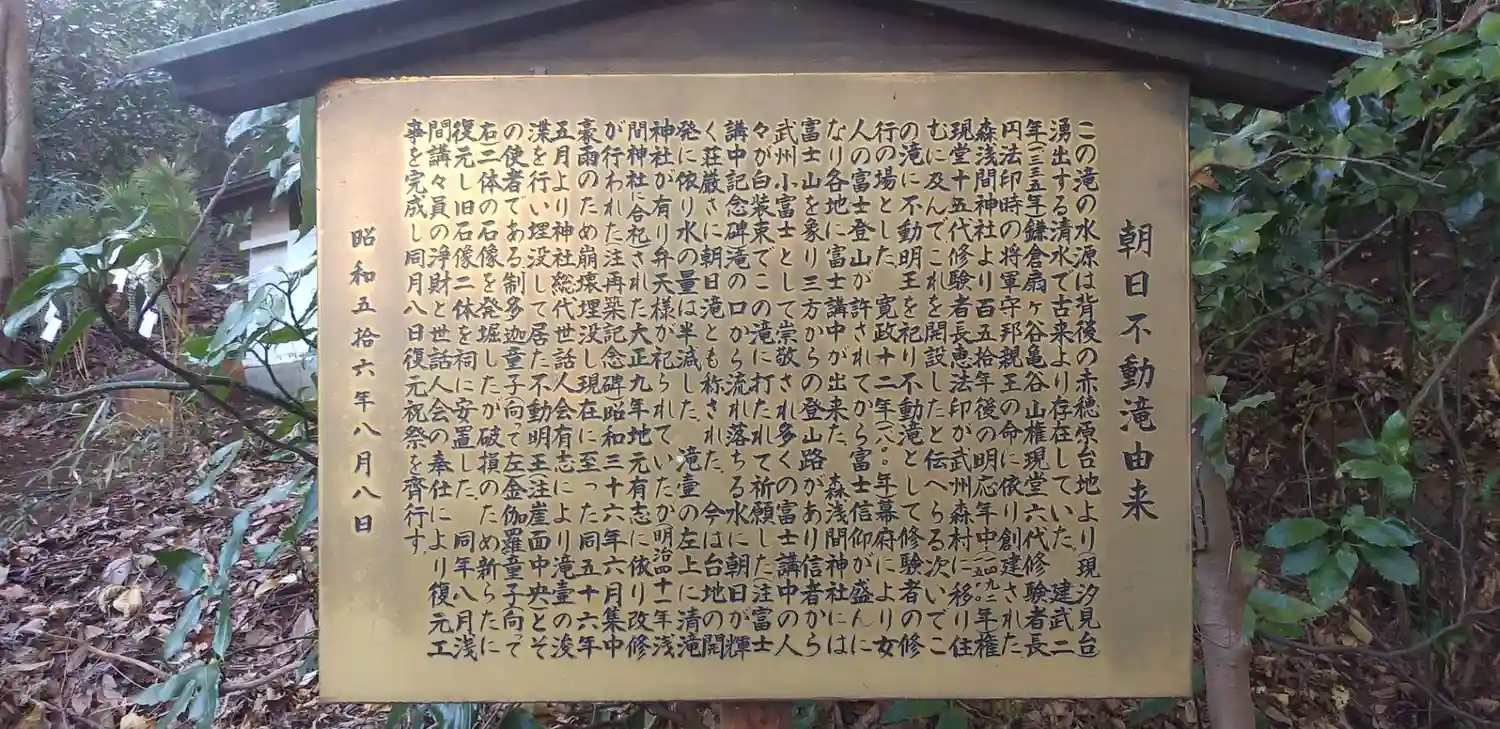 朝日不動滝由来
この滝の水源は背後の赤穂原台地より(現汐見台)
湧出する清水で古来より存在していた。建武二
年(一三三五年)鎌倉扇ヶ谷亀谷山権現堂六代修験者長
円法印時の将軍守邦親王の命に依り創建された
森浅間神社より百五拾年後の明応年中(一四九二〜一五〇〇)年権
現堂十五代修験者長恵法印が武州森村に移り住
むに及んでこれを開設したと伝へらる次いでこ
の滝に不動明王を祀り不動滝として修験者の修
行の場とした。寛政十二年(一八〇〇)年幕府により女
人の富士登山が許されてから富士信仰が盛んに
なり各地に富士講中が出来た。森浅間神社には
富士山を象り三方からの登山路があり信者から
武州小富士として崇敬され多くの富士講中の人
々が白装束でこの滝に打たれて祈願した注富士
講中記念碑滝の口から流れ落ちる水に朝日が輝
く荘厳さに朝日滝とも称された。今は台地の開
発に依り水の量は半減した。滝壷の左上に清滝
神社が有り弁天様が祀られていたが明治四十一年浅
間神社に合祀された大正九年地元有志に依り改修
が行われた注再築記念碑昭和三十六年六月集中
豪雨のため崩壊埋没し現在に至った同五十六年
五月より神社総代世話人会有志により滝壷の浚
渫を行い埋没して居た不動明王注崖面中央とそ
の使者である制多迦童子向って左金伽羅童子向て
右二体の石像を発堀したが破損のため新らたに
復元し旧石像二体を祠に安置した。同年八月浅
間講々員の浄財と世話人会の奉仕により復元工
事を完成し同月八日復元祝祭を斉行す
昭和五拾六年八月八日